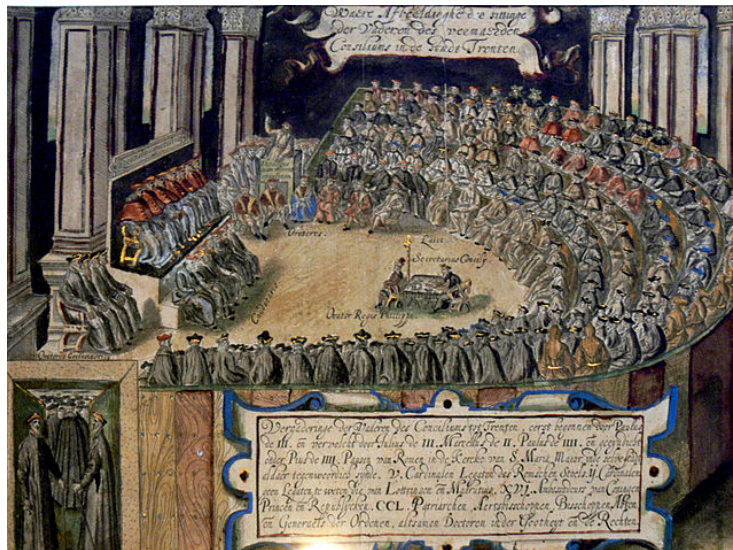 Waere Afbeeldinghe der sittinge
der Vaderen des vermaerden
Consiliums in de Stadt Trenten
Oratores.
Laici
Secretarius Concily
Orator Regis Philippi.
Vergaderinge der Vaderen des Conciliums tot Trenten, eerst begonnen door Paulus
de III. en vervolcht door Julius de III. Marcellus de II. Paulus de IIII. en geeyndicht
onder Pius de IIII. Pausen van Romen in de Kercke van S. Maria Maior
aldaer tegenwoordich synde. V. Cardinalen Legaten des Roomschen Stoels. ij. Cardinalen
geen Legaten te weten die van Lottringen en Madrutius. XVI. Ambassadeurs van Coningen
Princen en Republycken. CCL. Patriarchen Aertsbisschoppen Bisschoppen Abten
en Generaels der Ordenen, altsamen Doctoren in der Godtheyt en de Rechten